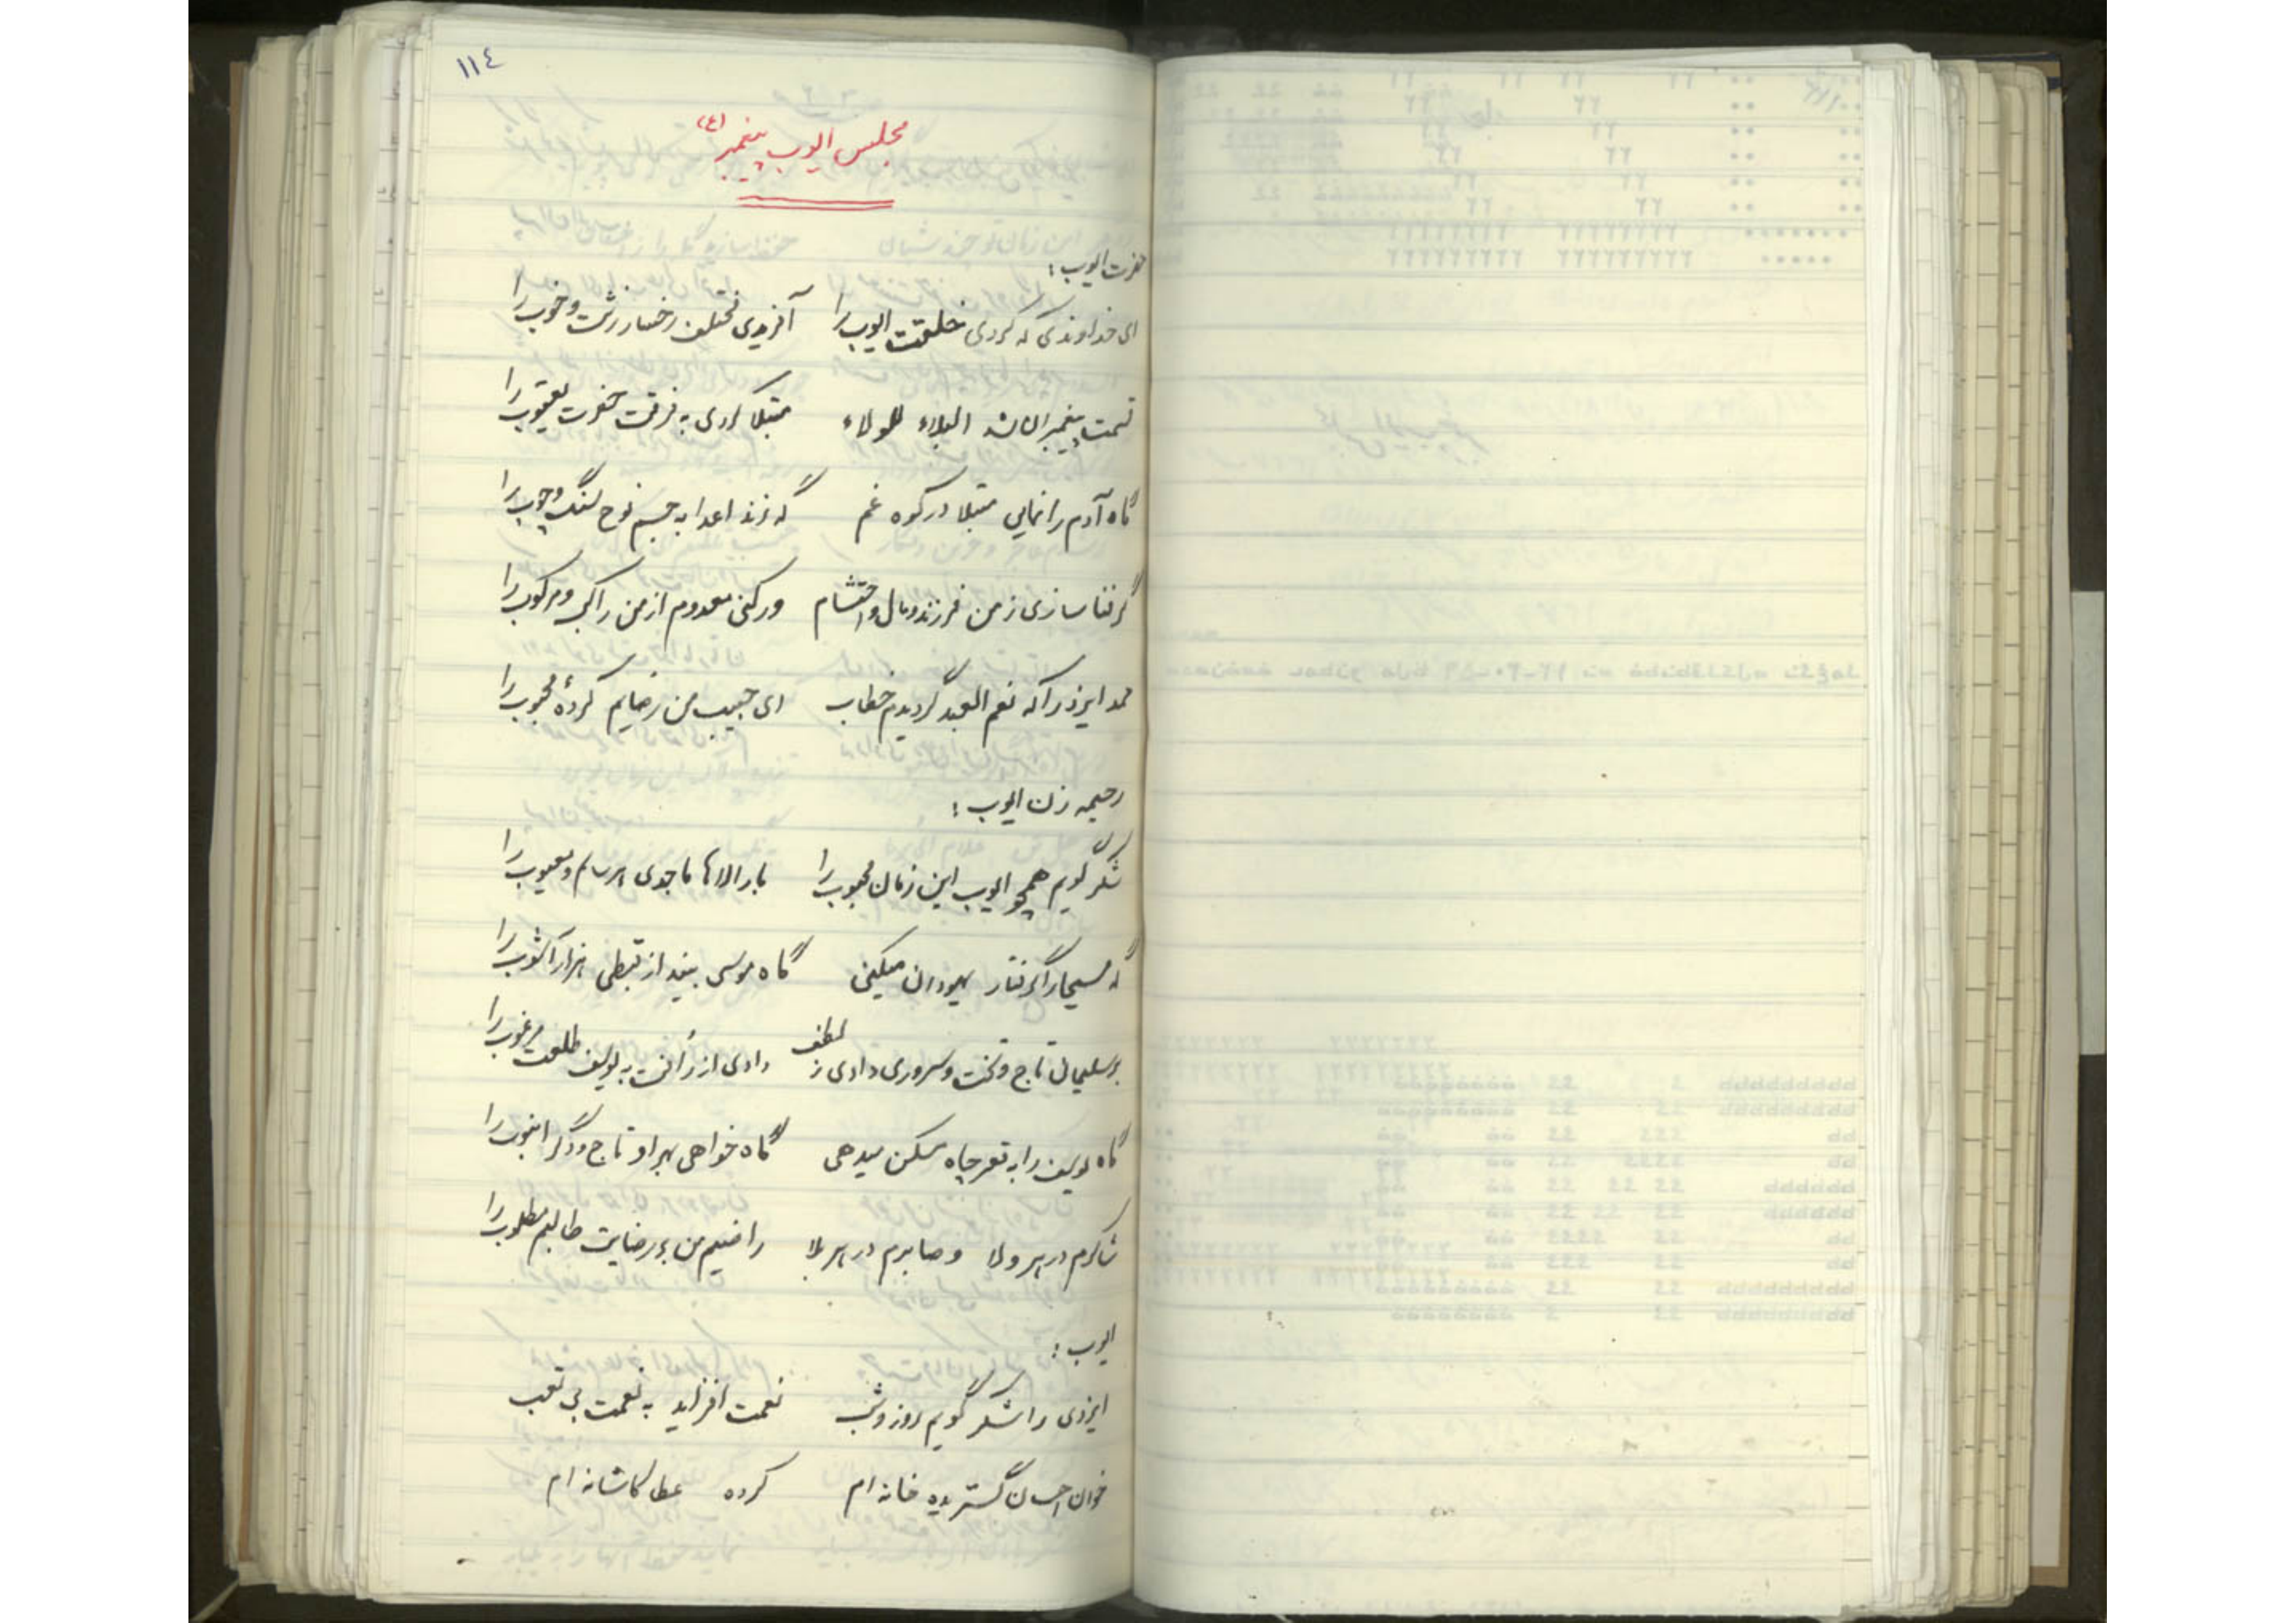 ١١٤
مجلس ایوب پیغمبر (ع)
حضرت ایوب :
ای خداوندی که کردی خلقت ایوب را آفریدی مختلف رخسار زشت و خوب را
قسمت پیغمبران شد البلاء للولاء مبتلا کردی به فرقت حضرت یعقوب را
گاه آدم را نمایی مبتلا در کوه غم گه زند اعدا به جسم نوح سنگ و چوب را
گر فنا سازی ز من فرزند و مال و احتشام ور کنی معدوم از من راکب و مرکوب را
حمد ایزد را که نعم العبد گردیدم خطاب ای حبیب من رضایم کردهٔ محبوب را
رحیمه زن ایوب :
شکر گویم همچو ایوب این زمان محبوب را بار الاها ماجدی هر سالم و معیوب را
گه مسیحا را گرفتار یهودان میکنی گاه موسی بیند از قبطی هزار آشوب را
بر سلیمان تاج و تخت و سروری دادی ز لطف دادی از رأفت به یوسف طلعت مرغوب را
گاه یوسف را به قعر چاه مسکن میدهی گاه خواهی بهر او تاج و گر
شاکرم در هر ولا و صابرم در هر بلا راضیم من بر رضایت طالبم مطلوب را
ایوب :
ایزدی را شکر گویم روز و شب نعمت افزاید به نعمت بی تعب
خوان احسان گستریده خانه ام کرده عطا کاشانه ام